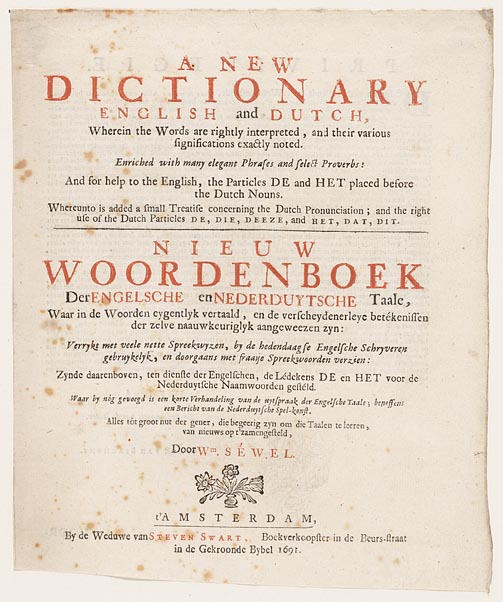 A NEW
DICTIONARY
ENGLISH and DUTCH,
Wherein the Words are rightly interpreted, and their various
significations exactly noted.
Enriched with many elegant Phrases and select Proverbs:
And for help to the English, the Particles DE and HET placed before
the Dutch Nouns.
Whereunto is added a small Treatise concerning the Dutch Pronunciation; and the right
use of the Dutch Particles DE, DIE, DEEZE, and HET, DAT, DIT.
NIEUW
WOORDENBOEK
Der ENGELSCHE en NEDERDUYTSCHE Taale,
Waar in de Woorden eygentlyk vertaald, en de verscheydenerleye betékenissen
der zelve naauwkeuriglyk aangeweezen zyn:
Verrykt met veele nette Spreekwyzen, by de hedendaagse Engelsche Schryveren
gebruykelyk, en doorgaans met fraaje Spreekwoorden verzien:
Zynde daarenboven, ten dienste der Engelschen, de Lédekens DE en HET voor de
Nederduytsche Naamwoorden gestéld.
Waar by nóg gevoegd is een korte Verhandeling van de uytspraak der Engelsche Taale; beneffens
een Bericht van de Nederduytsche Spel-konst.
Alles tót groot nut der gener, die begeerig zyn om die Taalen te leeren,
van nieuws op t'zamengesteld,
Door Wm. SÉWEL.
t'AMSTERDAM,
By de Weduwe van STEVEN SWART, Boekverkoopster in de Beurs-straat
in de Gekroonde Bybel 1691.